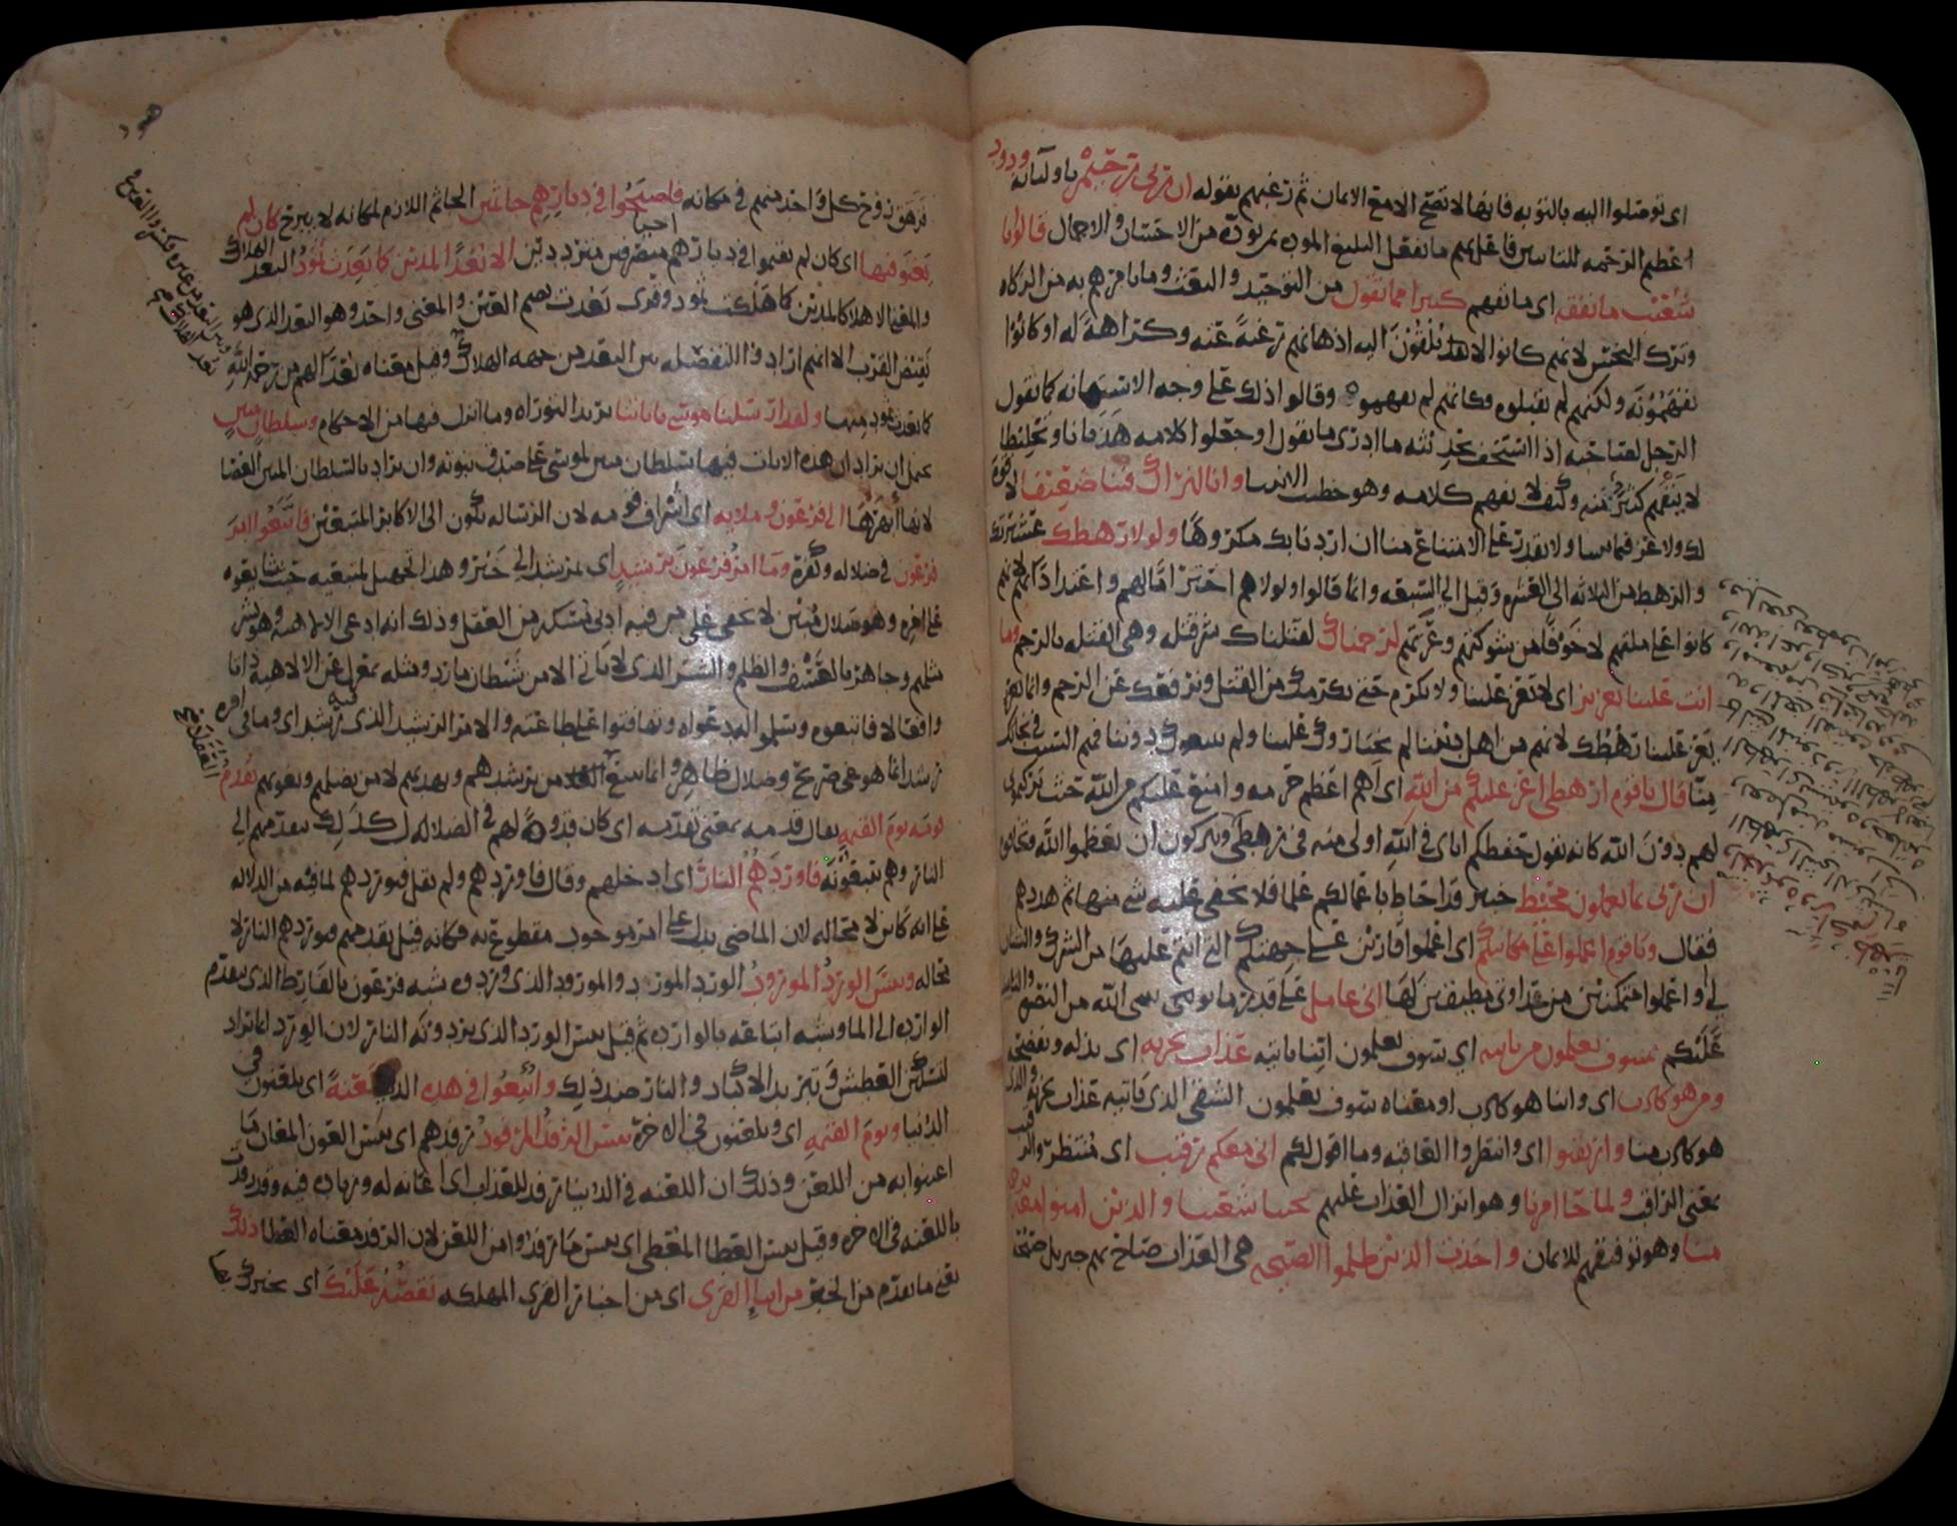 اى توصلوا اليه بالتوبه فانها لا تصح الا مع الايمان ثم رغبهم بقوله ان ربى رحيم باوليائه ودود
اعظم الرحمه للناس فاعل بهم ما يفعل البليغ الموده بمن يوده من الاحسان والاجمال قالوا يا
شعيب ما نفقه اى ما نفهم كثيرا مما تقول من التوحيد والبعث وما يامرهم به من الزكاه
وترك البخس لانهم كانوا لا يلقون اليه اذهانهم رغبة عنه وكراهة له او كانوا
يفهمونه ولكنهم لم يقبلوه فكانهم لم يفهموه وقالوا ذلك على وجه الاستهانه كما يقول
الرجل لصاحبه اذا استخف بحديثه ما ادرى ما تقول او جعلوا كلامه هذيانا وتخليطا
لا ينفعهم كثير منه وكيف لا يفهم كلامه وهو خطيب الانبيا وانا لنراك فينا ضعيفا لا قوة
لك ولا عز فيما بيننا ولا تقدر على الامتناع منا ان اردنا بك مكروها ولولا رهطك عشيرتك
والرهط من الثلاثه الى العشره وقيل الى السبعه وانما قالوا ولولاهم احتراما لهم واعتدادا بهم لانهم
كانوا على ملتهم لا خوفا من شوكتهم وعزتهم لرجمناك لقتلناك شر قتله وهى القتله بالرجم وما
انت علينا بعزيز اى لا تعز علينا ولا تكرم حتى نكرمك من القتل ونرفعك عن الرجم وانما يعز
علينا رهطك لانهم من اهل ديننا لم يختاروك علينا ولم يتبعوك دوننا
قال يا قوم ارهطى اعز عليكم من الله اى اهم اعظم حرمه وامنع عليكم من الله حيث تركتمونى
لهم دون الله كانه يقول حفظكم اياى فى الله اولى منه فى رهطى
ان ربى بما تعملون محيط خبير قد احاط باعمالكم علما فلا يخفى عليه شى منها ثم هددهم
فقال ويا قوم اعملوا على مكانتكم اى اعملوا قارين على جهتكم التى انتم عليها من الشرك والشنان
لى او اعملوا متمكنين من عداوتى مطيقين لها انى عامل على قدر ما يوتينى الله من النصر
عليكم سوف تعلمون من ياتيه اى سوف تعلمون اينا ياتيه عذاب يخزيه اى يذله ويفضحه
ومن هو كاذب اى واينا هو كاذب او معناه سوف تعلمون الشقى الذى ياتيه عذاب يخزيه والذى
هو كاذب منا وارتقبوا اى وانتظروا العاقبه وما اقول لكم انى معكم رقيب اى منتظر والرقيب
بمعنى الراقب ولما جا امرنا وهو انزال العذاب عليهم نجينا شعيبا والذين امنوا معه برحمه
منا وهو توفيقهم للايمان واخذت الذين ظلموا الصيحه هى العذاب صاح بهم جبريل صيحة
فزهق روح كل واحد منهم فى مكانه فاصبحوا فى ديارهم جاثمين الجاثم اللازم لمكانه لا يبرح كان لم
يغنوا فيها اى كان لم يقيموا فى ديارهم احيا متصرفين مترددين الا بعدا لمدين كما بعدت ثمود البعد الهلاك
والمعنى الا هلاكا لمدين كما هلكت ثمود وقرى بعدت بضم العين والمعنى واحد وهو البعد الذى هو
نقيض القرب الا انهم ارادوا التفصله بين البعد من جهه الهلاك وقيل معناه بعدا لهم من رحمه الله
كما بعدت ثمود منها ولقد ارسلنا موسى باياتنا يريد التوراه وما انزل فيها من الاحكام وسلطان مبين
يحتمل ان يراد ان هذه الايات فيها سلطان مبين لموسى على صدق نبوته وان يراد بالسلطان المبين العصا
لانها ابهرها الى فرعون وملايه اى اشراف قومه لان الرساله تكون الى الاكابر المتبعين فاتبعوا امر
فرعون فى ضلاله وكفره وما امر فرعون برشيد اى بمرشد الى خير وهذا تجهيل لمتبعيه حيث شايعوه
على امره وهو ضلال مبين لا يخفى على من فيه ادنى مسكه من العقل وذلك انه ادعى الالاهيه وهو بشر
مثلهم وجاهر بالعسف والظلم والشر الذى لا ياتى الا من شيطان مارد ومثله بمعزل عن الالاهيه ذاتا
وافعالا فاتبعوه وسلموا اليه دعواه وتهافتوا على طاعته والامر الرشيد الذى فيه رشد اى وما فى امره
رشد انما هو غى صريح وضلال ظاهر وانما يتبع العقلا من يرشدهم ويهديهم لا من يضلهم ويغويهم يقدم
قومه يوم القيمه يقال قدمه بمعنى تقدمه اى كان قدوة لهم فى الضلاله كذلك يتقدمهم الى
النار وهم يتبعونه فاوردهم النار اى ادخلهم وقال فاوردهم ولم يقل فيوردهم لما فيه من الدلاله
على انه كاين لا محاله لان الماضى يدل على امر موجود مقطوع به فكانه قيل يقدمهم فيوردهم النار لا
محاله وبيس الورد المورود الورد المورد والمورود الذى وردوه شبه فرعون بالفارط الذى يتقدم
الوارده الى الما وشبه اتباعه بالوارده ثم قيل بيس الورد الذى يردونه النار لان الورد انما يراد
لتسكين العطش وتبريد الاكباد والنار ضد ذلك واتبعوا فى هذه الدنيا لعنة اى يلعنون فى
الدنيا ويوم القيمه اى ويلعنون فى الاخره بيس الرفد المرفود رفدهم اى بيس العون المعان ما
اعينوا به من اللعن وذلك ان اللعنه فى الدنيا رفد للعذاب اى اعانه له وزياده فيه وقد رفدت
باللعنه فى الاخره وقيل بيس العطا المعطى اى بيس ما رفدوا من اللعن لان الرفد معناه العطا ذلك
يعنى ما تقدم من الخبر من انبا القرى اى من اخبار القرى المهلكه نقصه عليك اى نخبرك بها